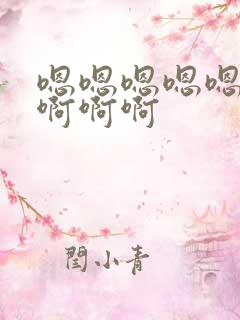 嗯嗯嗯嗯嗯
啊啊啊
閆小青